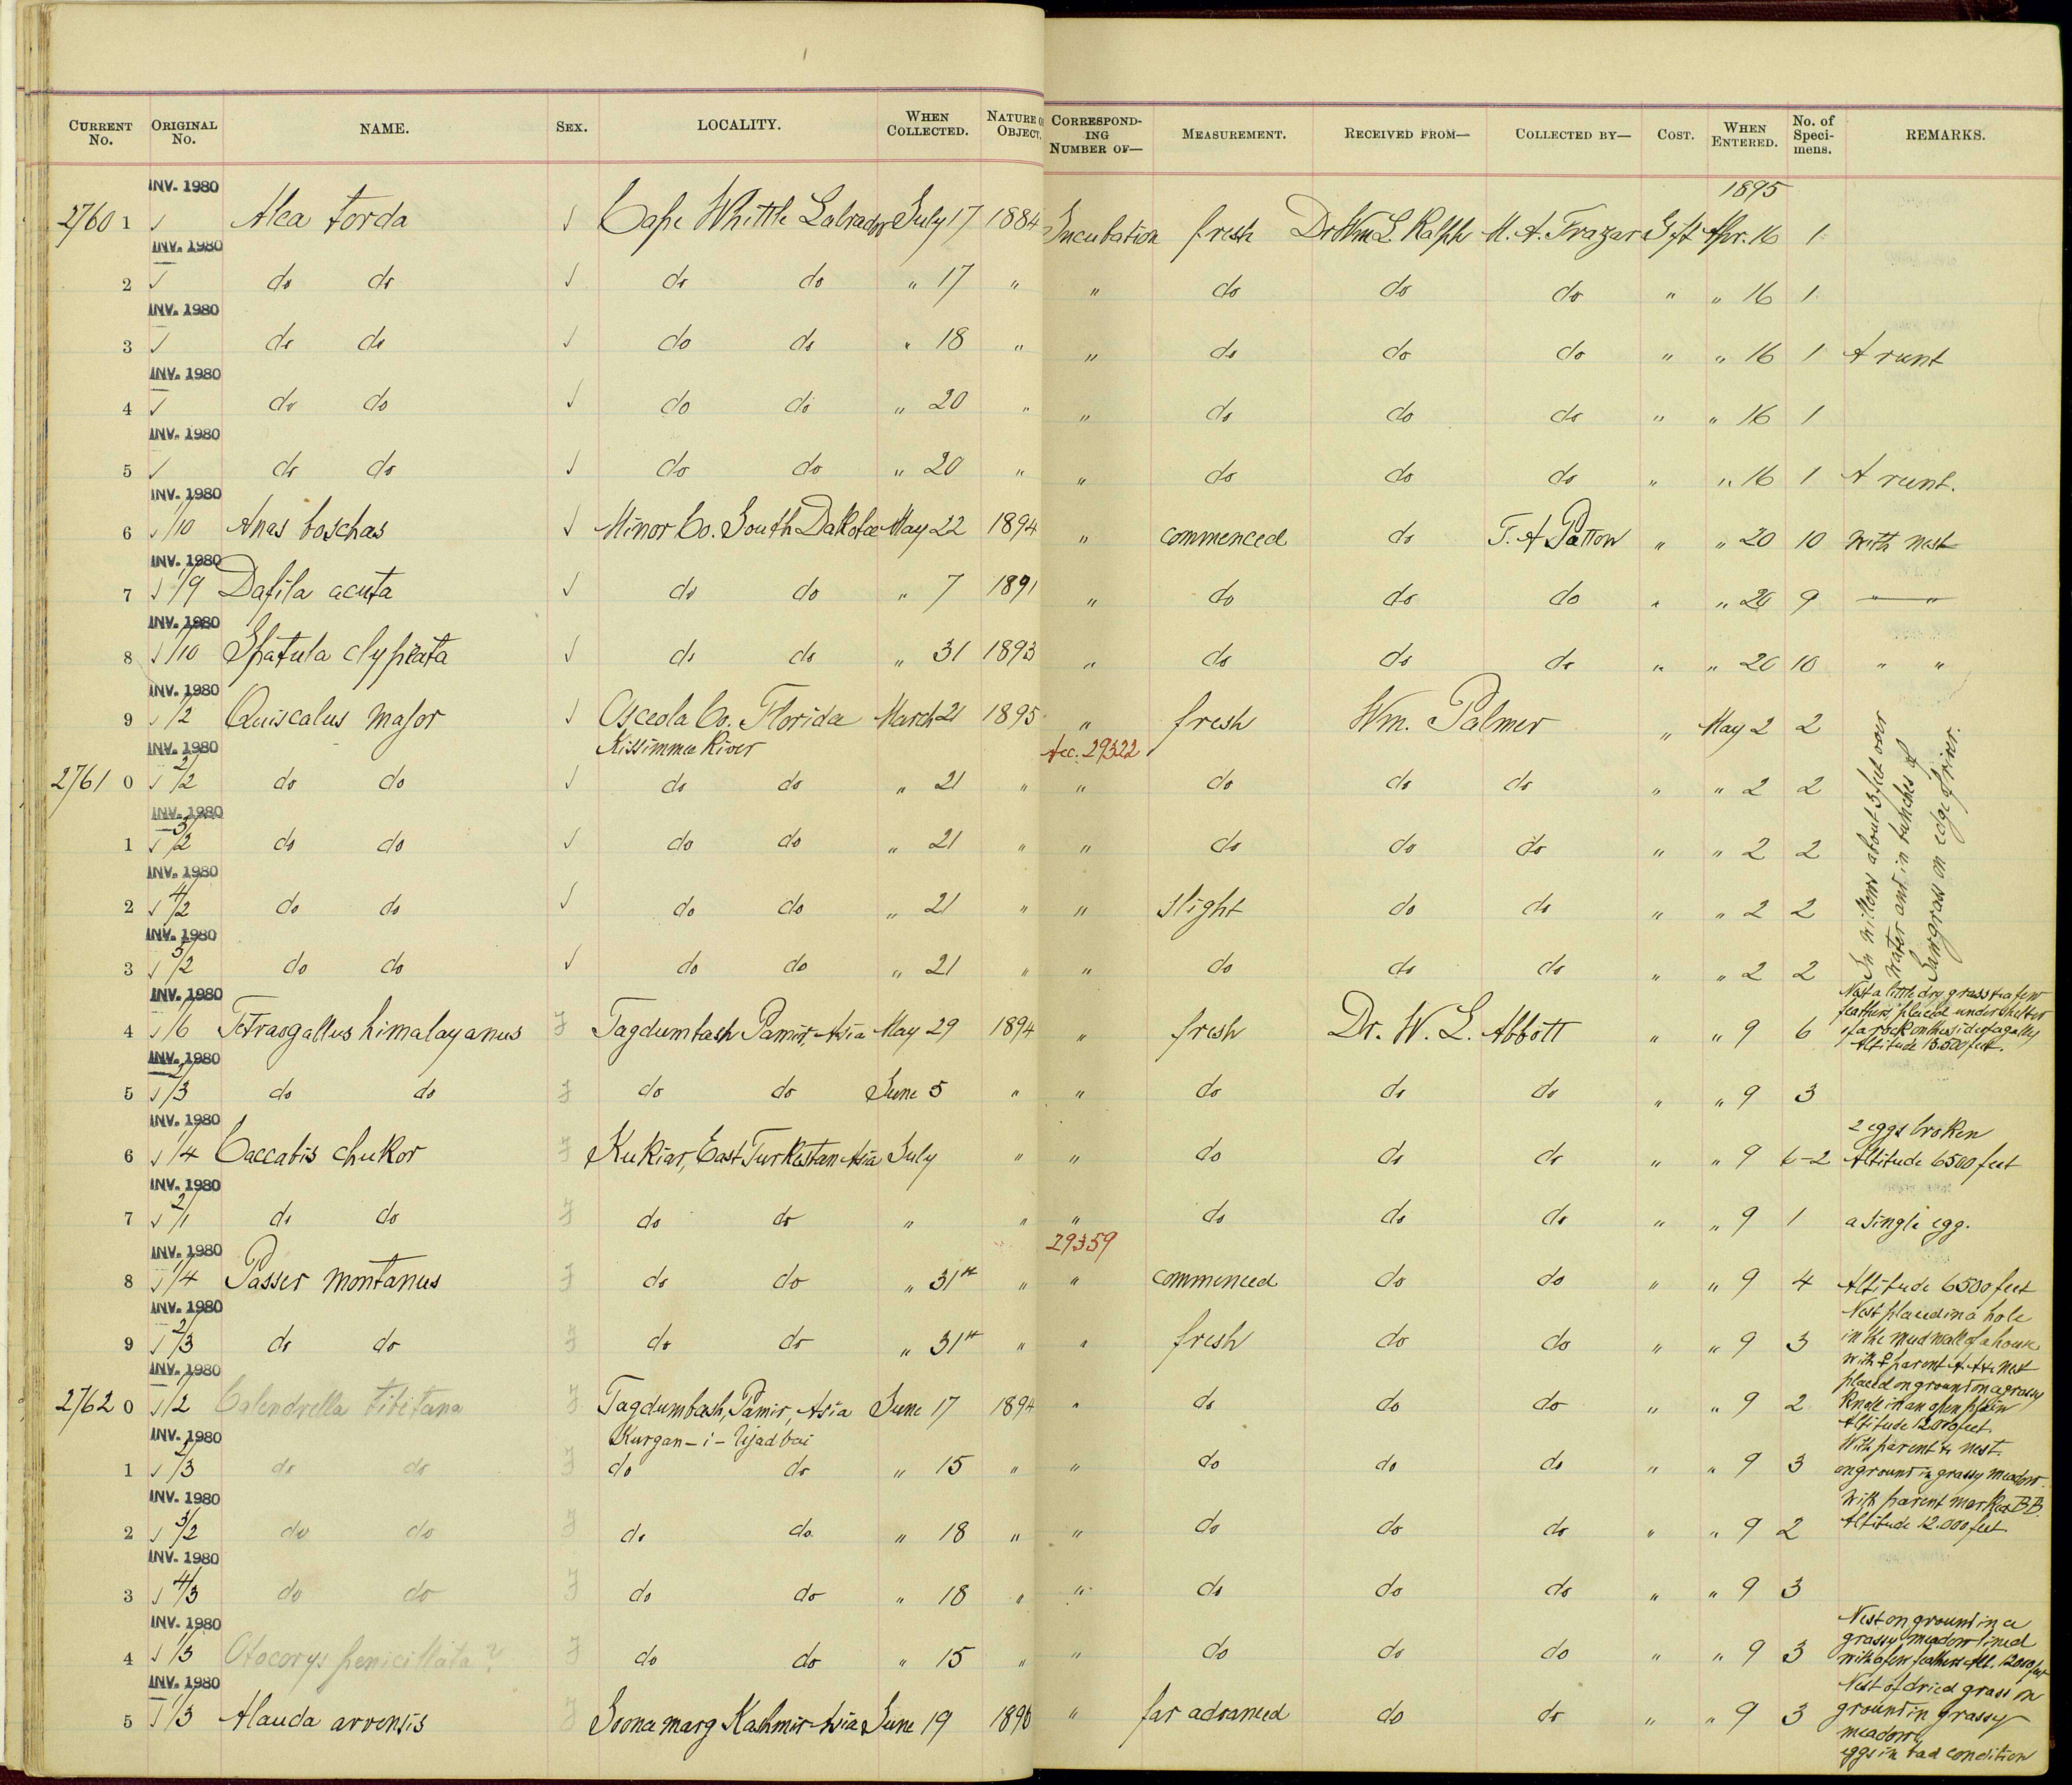 CURRENT No. ORIGINAL No. NAME. SEX. LOCALITY. WHEN COLLECTED. NATURE OF OBJECT. CORRESPONDING NUMBER OF— MEASUREMENT. RECEIVED FROM— COLLECTED BY— COST. WHEN ENTERED. No. of Specimens. REMARKS.
INV. 1980 1895
2760 1 Alca torda Cape Whittle Labrador July 17 1884 Incubation fresh Dr Wm L. Ralph M. A. Frazar Gift Apr. 16 1
INV. 1980
2 do do do do " 17 " " do do do " " 16 1
INV. 1980
3 do do do do " 18 " " do do do " " 16 1 A runt
INV. 1980
4 do do do do " 20 " " do do do " " 16 1
INV. 1980
5 do do do do " 20 " " do do do " " 16 1 A runt.
INV. 1980
6 1/10 Anas boschas Minor Co. South Dakota May 22 1894 " commenced do T. A. Patton " " 20 10 With nest
INV. 1980
7 1/9 Dafila acuta do do " 7 1891 " do do do " " 20 9 " "
INV. 1980
8 1/10 Spatula clypeata do do " 31 1893 " do do do " " 20 10 " "
INV. 1980
9 1/2 Quiscalus major Osceola Co. Florida March 21 1895 " fresh Wm. Palmer " May 2 2
INV. 1980 Kissimmee River Acc. 29322
2761 0 2/2 do do do do " 21 " " do do do " " 2 2
INV. 1980
1 3/2 do do do do " 21 " " do do do " " 2 2
INV. 1980
2 4/2 do do do do " 21 " " slight do do " " 2 2
INV. 1980
3 5/2 do do do do " 21 " " do do do " " 2 2
In willows about 3 feet over
water and in bunches of
Sawgrass on edge of river.
INV. 1980
Nest a little dry grass & a few
feathers, placed under shelter
4 1/6 Tetraogallus himalayanus Tagdumbash Pamir, Asia May 29 1894 " fresh Dr. W. L. Abbott " " 9 6 of a rock on the side of a gulley
Altitude 13.500 feet.
INV. 1980
5 2/3 do do do do June 5 " " do do do " " 9 3
INV. 1980 2 eggs broken
6 1/4 Caccabis chukor Kukiar, East Turkestan Asia July " " do do do " " 9 6-2 Altitude 6500 feet
INV. 1980
7 2/1 do do do do " " " do do do " " 9 1 a single egg.
INV. 1980 29359
8 1/4 Passer montanus do do " 31st " " commenced do do " " 9 4 Altitude 6500 feet
INV. 1980 Nest placed in a hole
9 2/3 do do do do " 31st " " fresh do do " " 9 3 in the mud wall of a house
INV. 1980 With ♀ parent A. A & nest
placed on ground on a grassy
2762 0 1/2 Calendrella tibetana Tagdumbash, Pamir, Asia June 17 1894 " do do do " " 9 2 knoll in an open plain
Altitude 12000 feet.
INV. 1980 Kurgan-i-Ujadbai With parent & nest.
1 2/3 do do do do " 15 " " do do do " " 9 3 on ground in grassy meadow.
INV. 1980 With parent marked BB.
2 3/2 do do do do " 18 " " do do do " " 9 2 Altitude 12.000 feet
INV. 1980
3 4/3 do do do do " 18 " " do do do " " 9 3
INV. 1980 Nest on ground in a
grassy meadow lined
4 1/3 Otocorys penicillata? do do " 15 " " do do do " " 9 3 with a few feathers Alt. 12000 feet
INV. 1980 Nest of dried grass on
5 1/3 Alauda arvensis Soonamarg Kashmir Asia June 19 " far advanced do do " " 9 3 ground in grassy
meadow,
eggs in bad condition